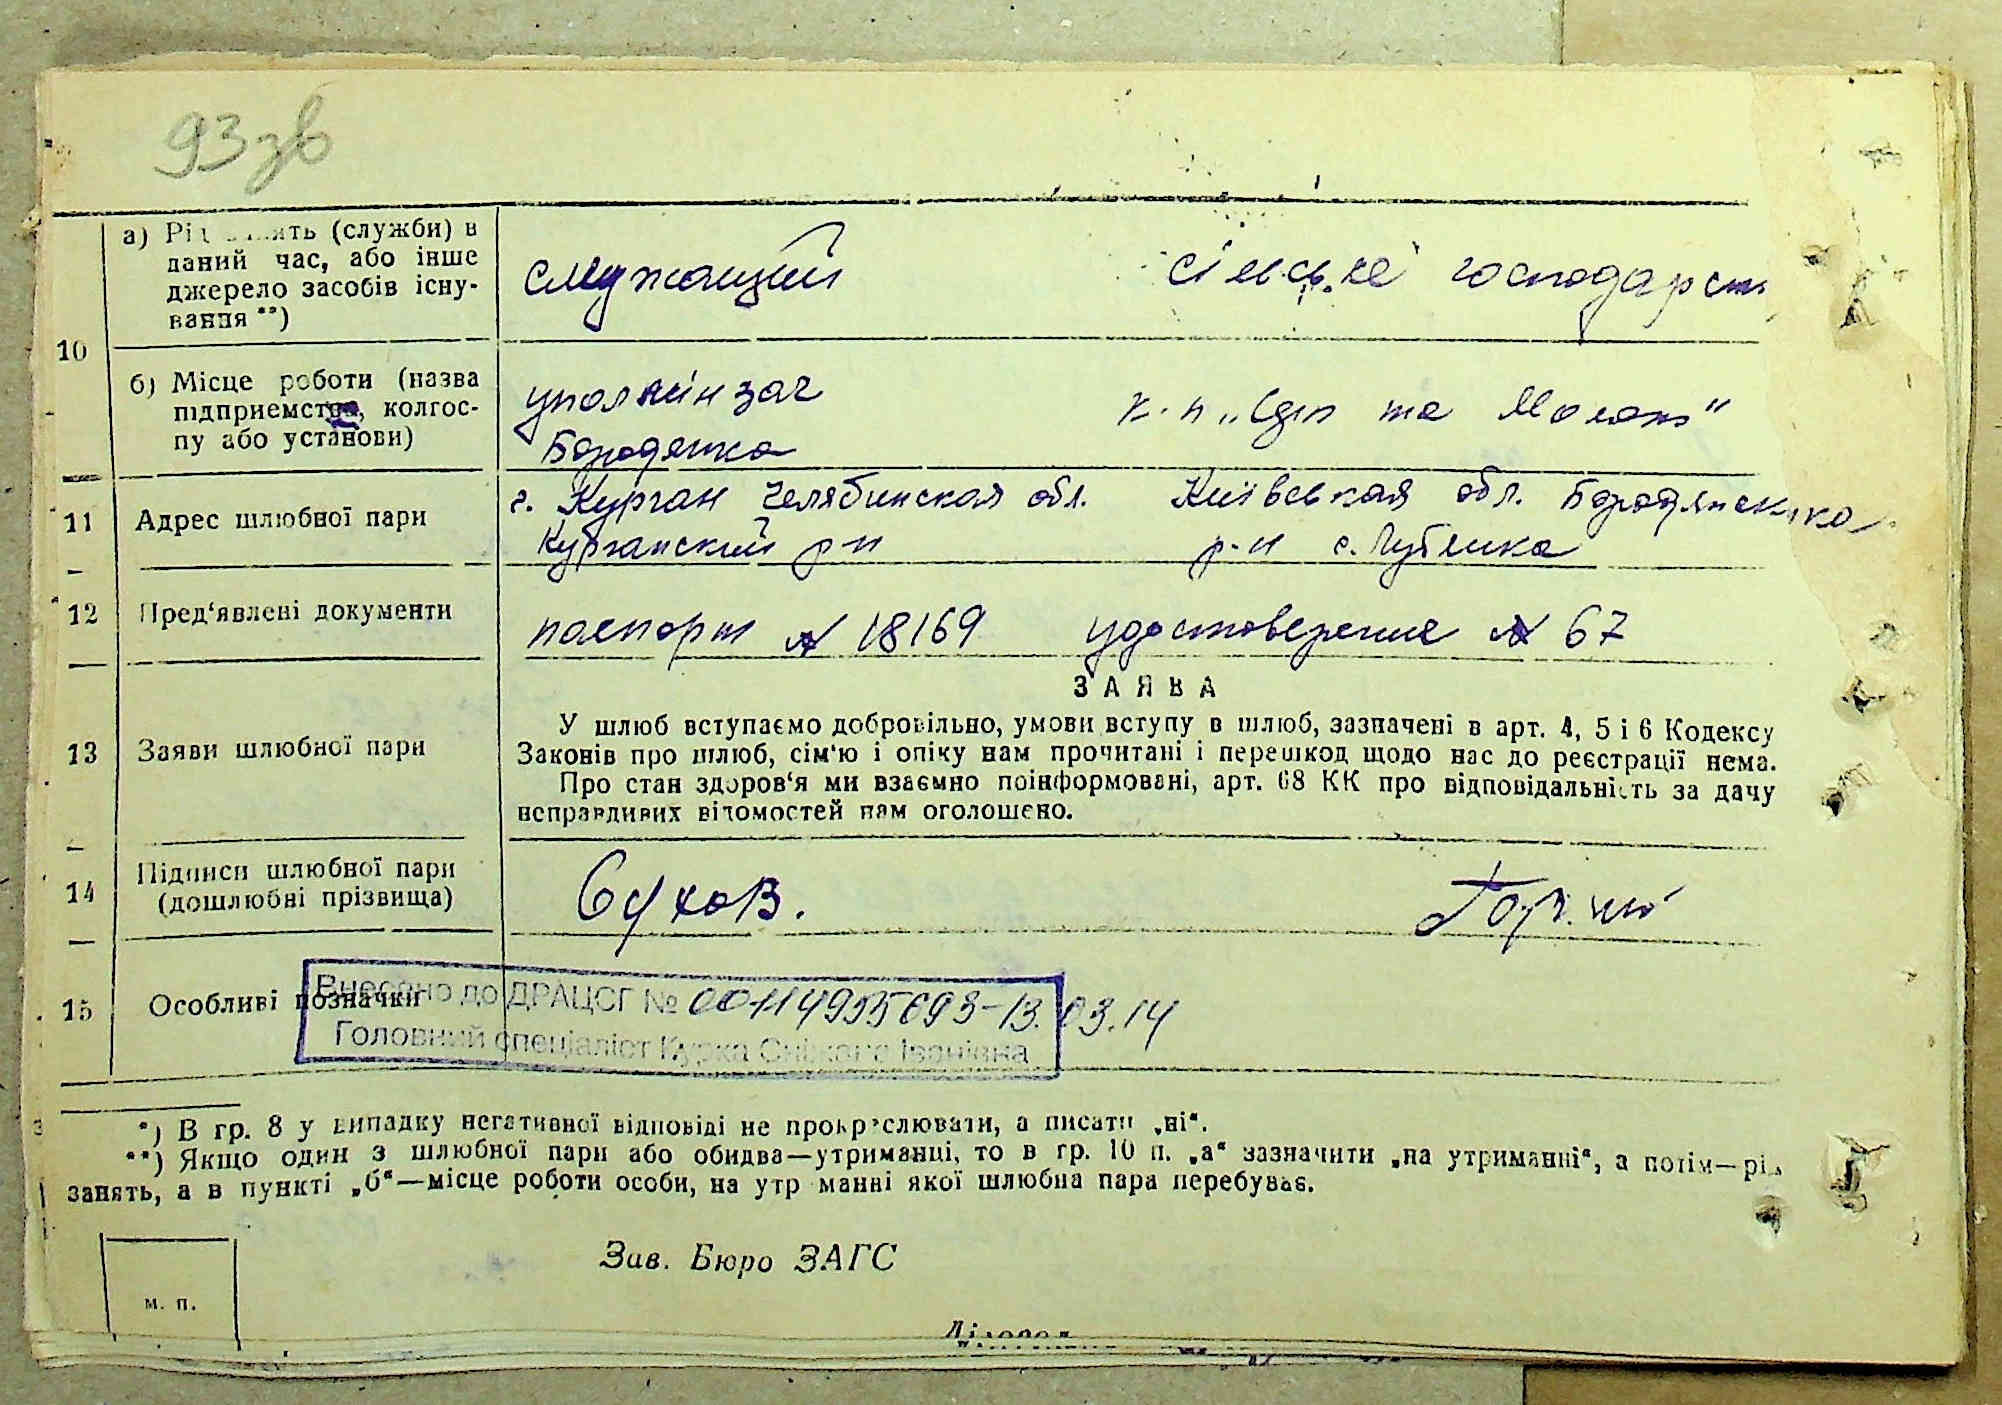 93зв
а) Рід занять (служби) в
даний час, або інше
джерело засобів існу-
вання **)
служащий
сільське господарств
10
б) Місце роботи (назва
підприємства, колгос-
пу або установи)
уполмінзаг
Бородянка
к-п „Серп та Молот"
11
Адрес шлюбної пари
г. Курган Челябинская обл.
Курганский р-н
Київськая обл. Бородянська
р-н с. Лубянка
12
Пред'явлені документи
паспорт № 18169
удостоверение № 67
13
Заяви шлюбної пари
ЗАЯВА
У шлюб вступаємо добровільно, умови вступу в шлюб, зазначені в арт. 4, 5 і 6 Кодексу
Законів про шлюб, сім'ю і опіку нам прочитані і перешкод щодо нас до реєстрації нема.
Про стан здоров'я ми взаємно поінформовані, арт. 68 КК про відповідальність за дачу
несправдивих відомостей нам оголошено.
14
Підписи шлюбної пари
(дошлюбні прізвища)
Сухов.
15
Особливі позначки
Внесено до ДРАЦСГ № 00114955693-13.03.14
Головний спеціаліст Курка Сніжана Іванівна
*) В гр. 8 у випадку негативної відповіді не прокреслювати, а писати „ні".
**) Якщо один з шлюбної пари або обидва—утриманці, то в гр. 10 п. „а" зазначити „на утриманні", а потім—рід
занять, а в пункті „б"—місце роботи особи, на утриманні якої шлюбна пара перебуває.
Зав. Бюро ЗАГС
м. п.
Діловод